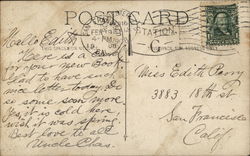 POST CARD
FEB 19
4 - PM
19 08
STATION
C
Hello Edith
Here is a card
for your new Book
Glad to have such
nice letter today. Be
some soon more
Yes it is cold here
wish it was spring.
Best love to all
Uncle Chas.
Miss Edith Perry
3883 18th st
San Francisco
Calif.